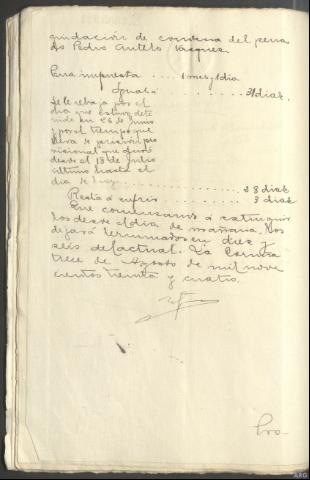 quidación de condena del pena
do Pedro Antelo Vazquez.
Pena impuesta .... 1 mes y 1 dia
Igual á 31 dias.
Se le rebaja por el
dia que estuvo dete
nido en 26 de Junio
y por el tiempo que
lleva de prisión pro
visional que sufre
desde el 18 de Julio
ultimo hasta el
dia de hoy ............ 28 dias
Resta á sufrir ........ 3 dias
Que comenzando á extinguir
los desde el dia de mañana, los
dejará terminados en diez y
seis del actual. La Coruña
trece de Agosto de mil nove
cientos treinta y cuatro.
Pro-
ARG